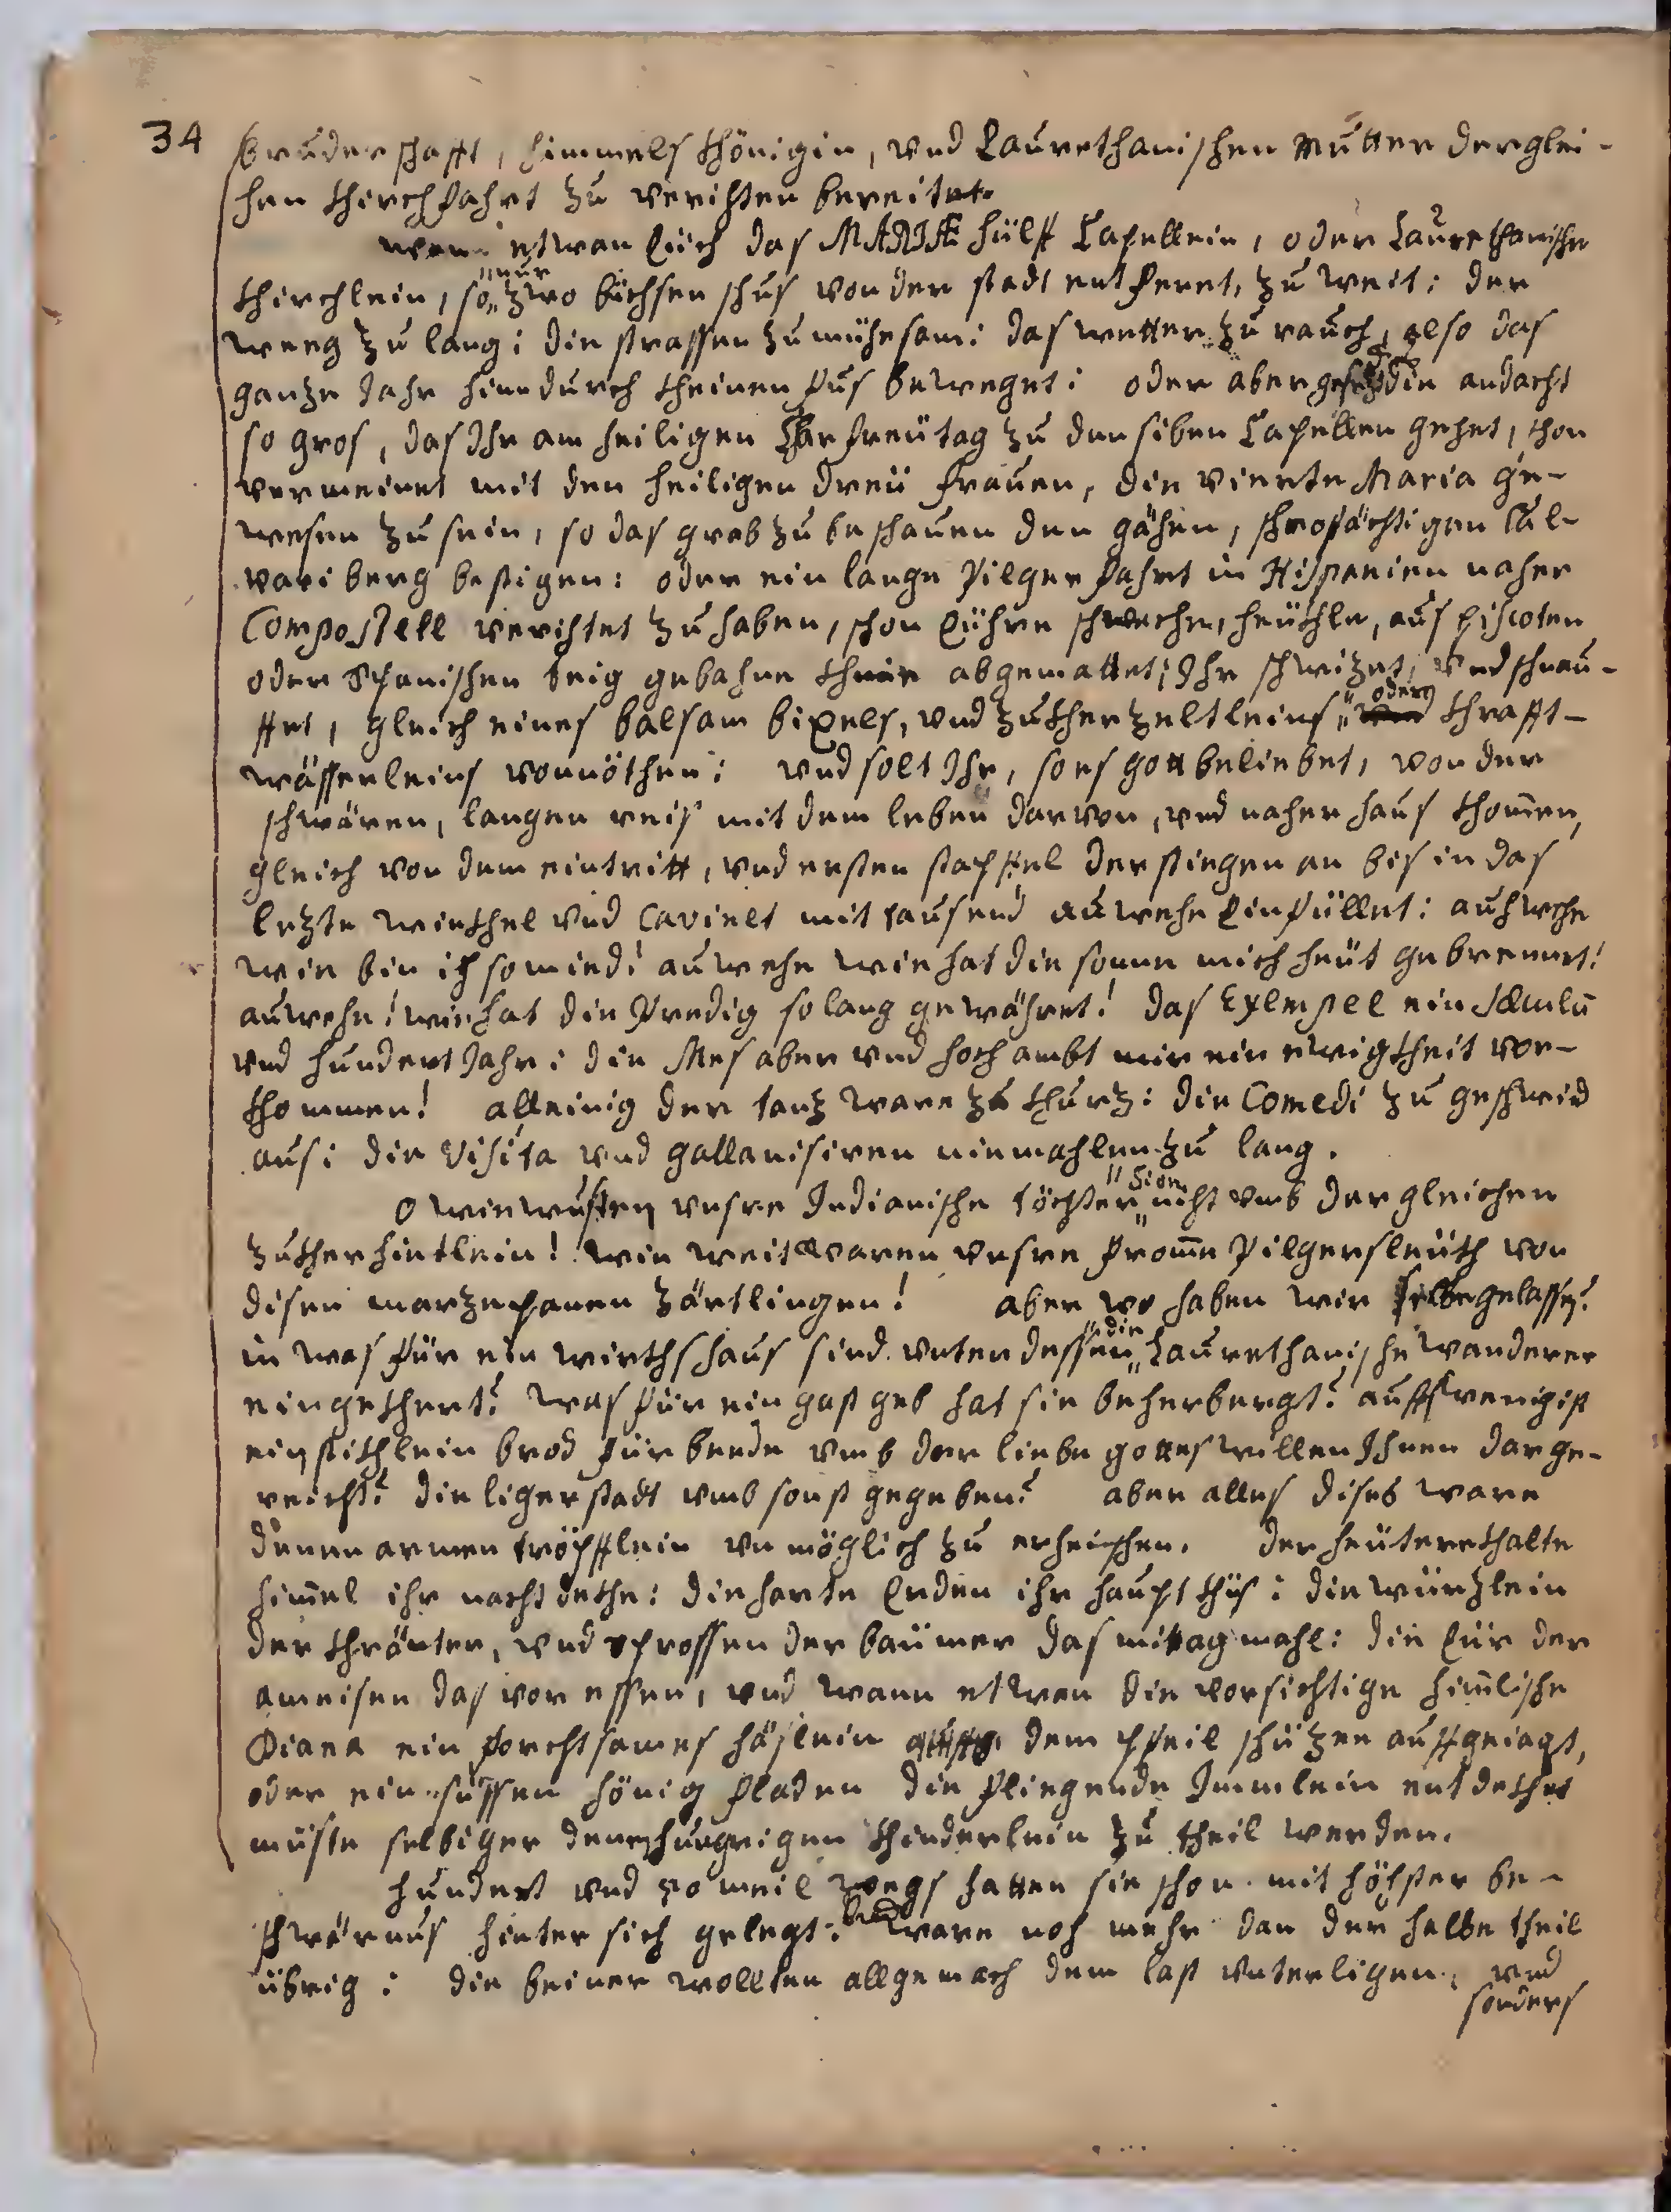 34 bruderschafft, himmels khönigin, vnd Laurethanischen Mutter derglei-
chen khirchfahrt zu verichten bereitet.
wan etwan Euch das MARIÆ hülff Capellein, oder Laurethanische
khirchlein, so nur zwo büchsen schus von der stadt entfernt, zu weit: der
weeg zu lang: die strassen zu mühesam: das wetter zu rauch, also das
ganze Jahr hindurch kheinen fus beweget: oder aber gesezt die andacht
so gros, das Ihr am heiligen Charfreütag zu den siben Capellen gehet, schon
vermeinet mit den heiligen dreü frauen, die vierte Maria ge-
wesen zu sein, so das grab zu beschauen den gähen, schrofächtigen Cal-
vari berg bestigen: oder ein lange pilgerfahrt in Hispanien naher
Compostell verichtet zu haben, schon Eühre schwache, heükhle, aus piscoten
oder Spanischen teig gebahne khnie abgemattet; Ihr schwizet, vnd schnau-
ffet, gleich eines balsam bixels, vnd zukherzeltleins oder khrafft-
wässerleins vonnöthen: vnd solt Ihr, so es gott beliebet, von der
schwären, langen reis mit dem leben darvon, vnd naher haus khom̄en,
gleich von dem eintritt, vnd ersten staffel der stiegen an bis in das
lezte winkhel vnd Caviнet mit tausend auwehe Einfüllet: auhwehe
wie bin ich so mied! auwehe wie hat die sonne mich heüt gebrennet!
auwehe! wie hat die Predig so lang gewähret! das Exempel ein sæculū
vnd hundert Jahr: die Mes aber vnd hochambt mir ein ewigkheit vor-
khommen! alleinig der tanz ware zu khurz: die Comedi zu geschwid
aus: die Visita vnd gallanisiren niemahlen zu lang.
O wie wusten vnsre Indianische töchter Sion nicht vmb dergleichen
zukherhietlein! wie weit waren vnsre from̄e Pilgersleüth von
disen marzepanen zärtlingen! aber wo haben wir selbe gelassen?
in was für ein wirthshaus sind vnterdessen die Laurethanische wanderer
eingekhert? was für ein gastgeb hat sie beherbergt? auffs wenigist
ein stikhlein brod für beede vmb der liebe gottes willen Ihnen darge-
reicht? die ligerstadt vmbsonst gegeben? aber alles dises ware
denen armen tröpfflein vnmöglich zu erheischen. der heütere khalte
him̄el ihr nachtdekhe: die harte Erden ihr hauptkhüs: die würzlein
der khräuter, vnd sprossen der baümer das mitagmahl: die Eür der
ameisen das voressen, vnd wann etwan die vorsichtige him̄lische
Diana ein forchtsames häslein dem pfeil schützen auffgeiagt,
oder ein süssen hönig fladen die fliegende Immlein entdekhet
muste selbiger denen hungrigen khinderlein zu theil werden.
Hundert vnd 50 meil wegs hatten sie schon mit höchster be-
schwärnus hinter sich gelegt: vnd ware noch mehr dan der halbe theil
übrig: die beiner wollten allgemach dem last vnterligen, vnd
sonders